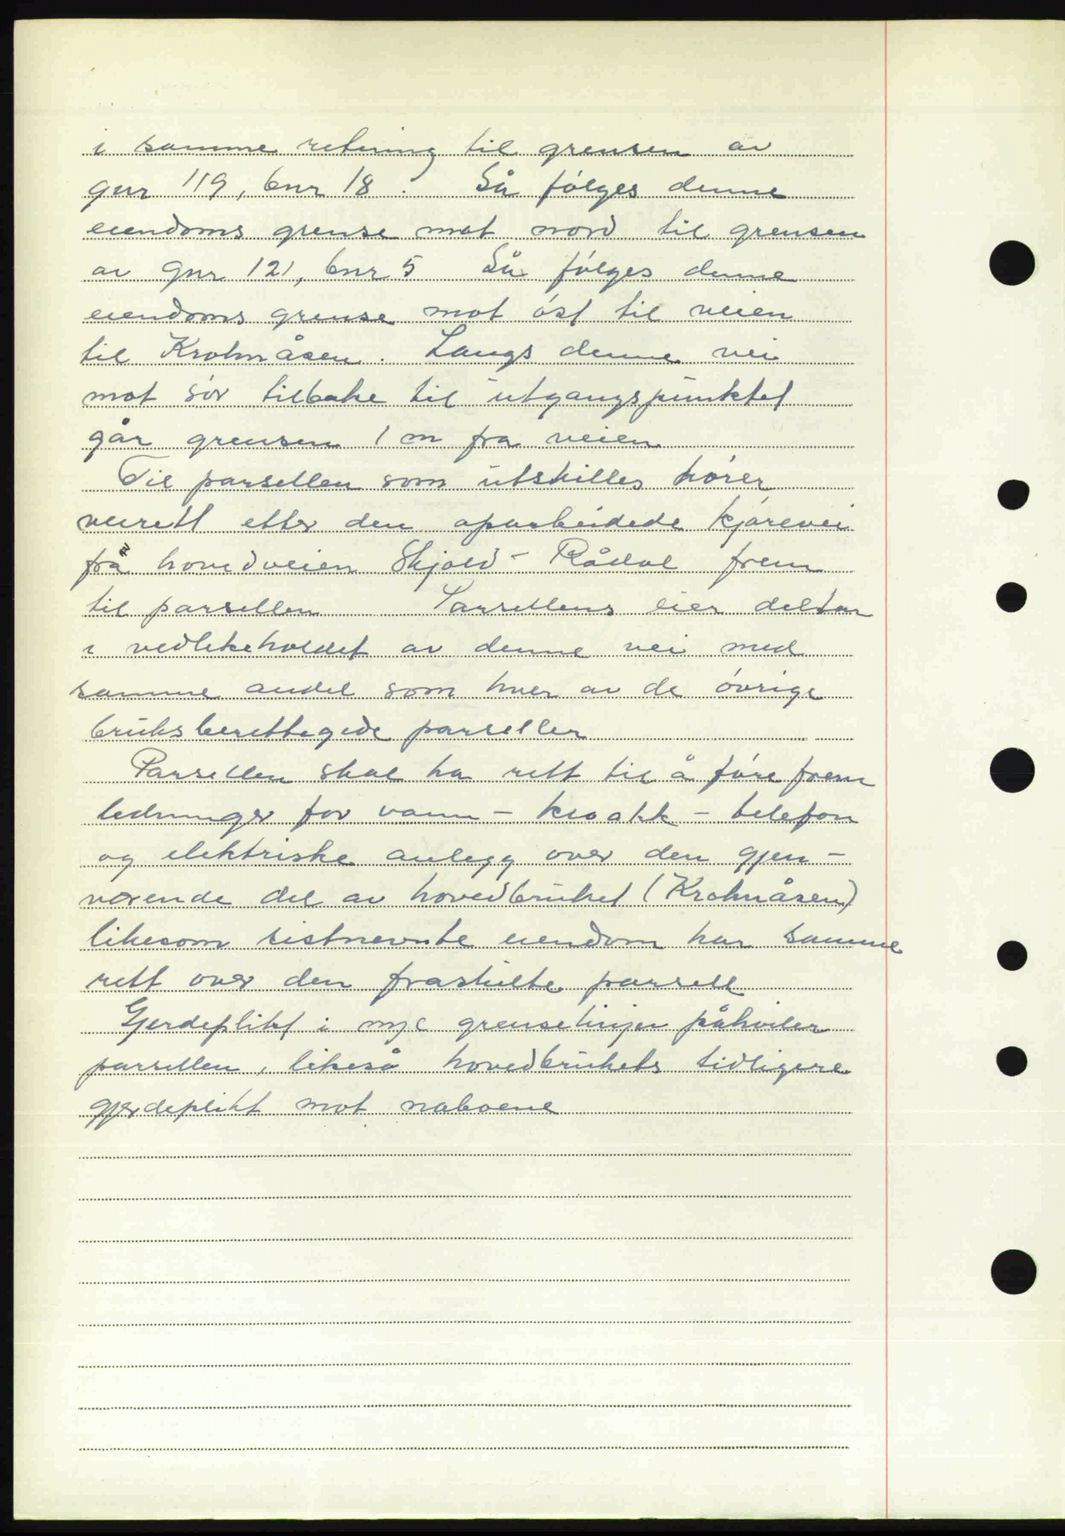 i samme retning til grensen av
gnr 119, bnr 18. Så følges denne
eiendoms grense mot nord til grensen
av gnr 121, bnr 5 Så følges denne
eiendoms grense mot øst til veien
til Krohnåsen. Langs denne vei
mot sør tilbake til utgangspunktet
går grensen 1 m fra veien
Til parsellen som utskilles hører
veirett etter den oparbeidede kjørevei
fra hovedveien Skjold - Rådal frem
til parsellen Parsellens eier deltar
i vedlikeholdet av denne vei med
samme andel som hver av de øvrige
bruksberettegede parseller
Parsellen skal ha rett til å føre frem
ledninger for vann - kloakk - telefon
og elektriske anlegg over den gjen-
værende del av hovedbruket (Krohnåsen)
likesom sistnevnte eiendom har samme
rett over den fraskilte parsell
Gjerdeplikt i nye grenselinjer påhviler
parsellen, likeså hovedbrukets tidligere
gjerdeplikt mot naboene